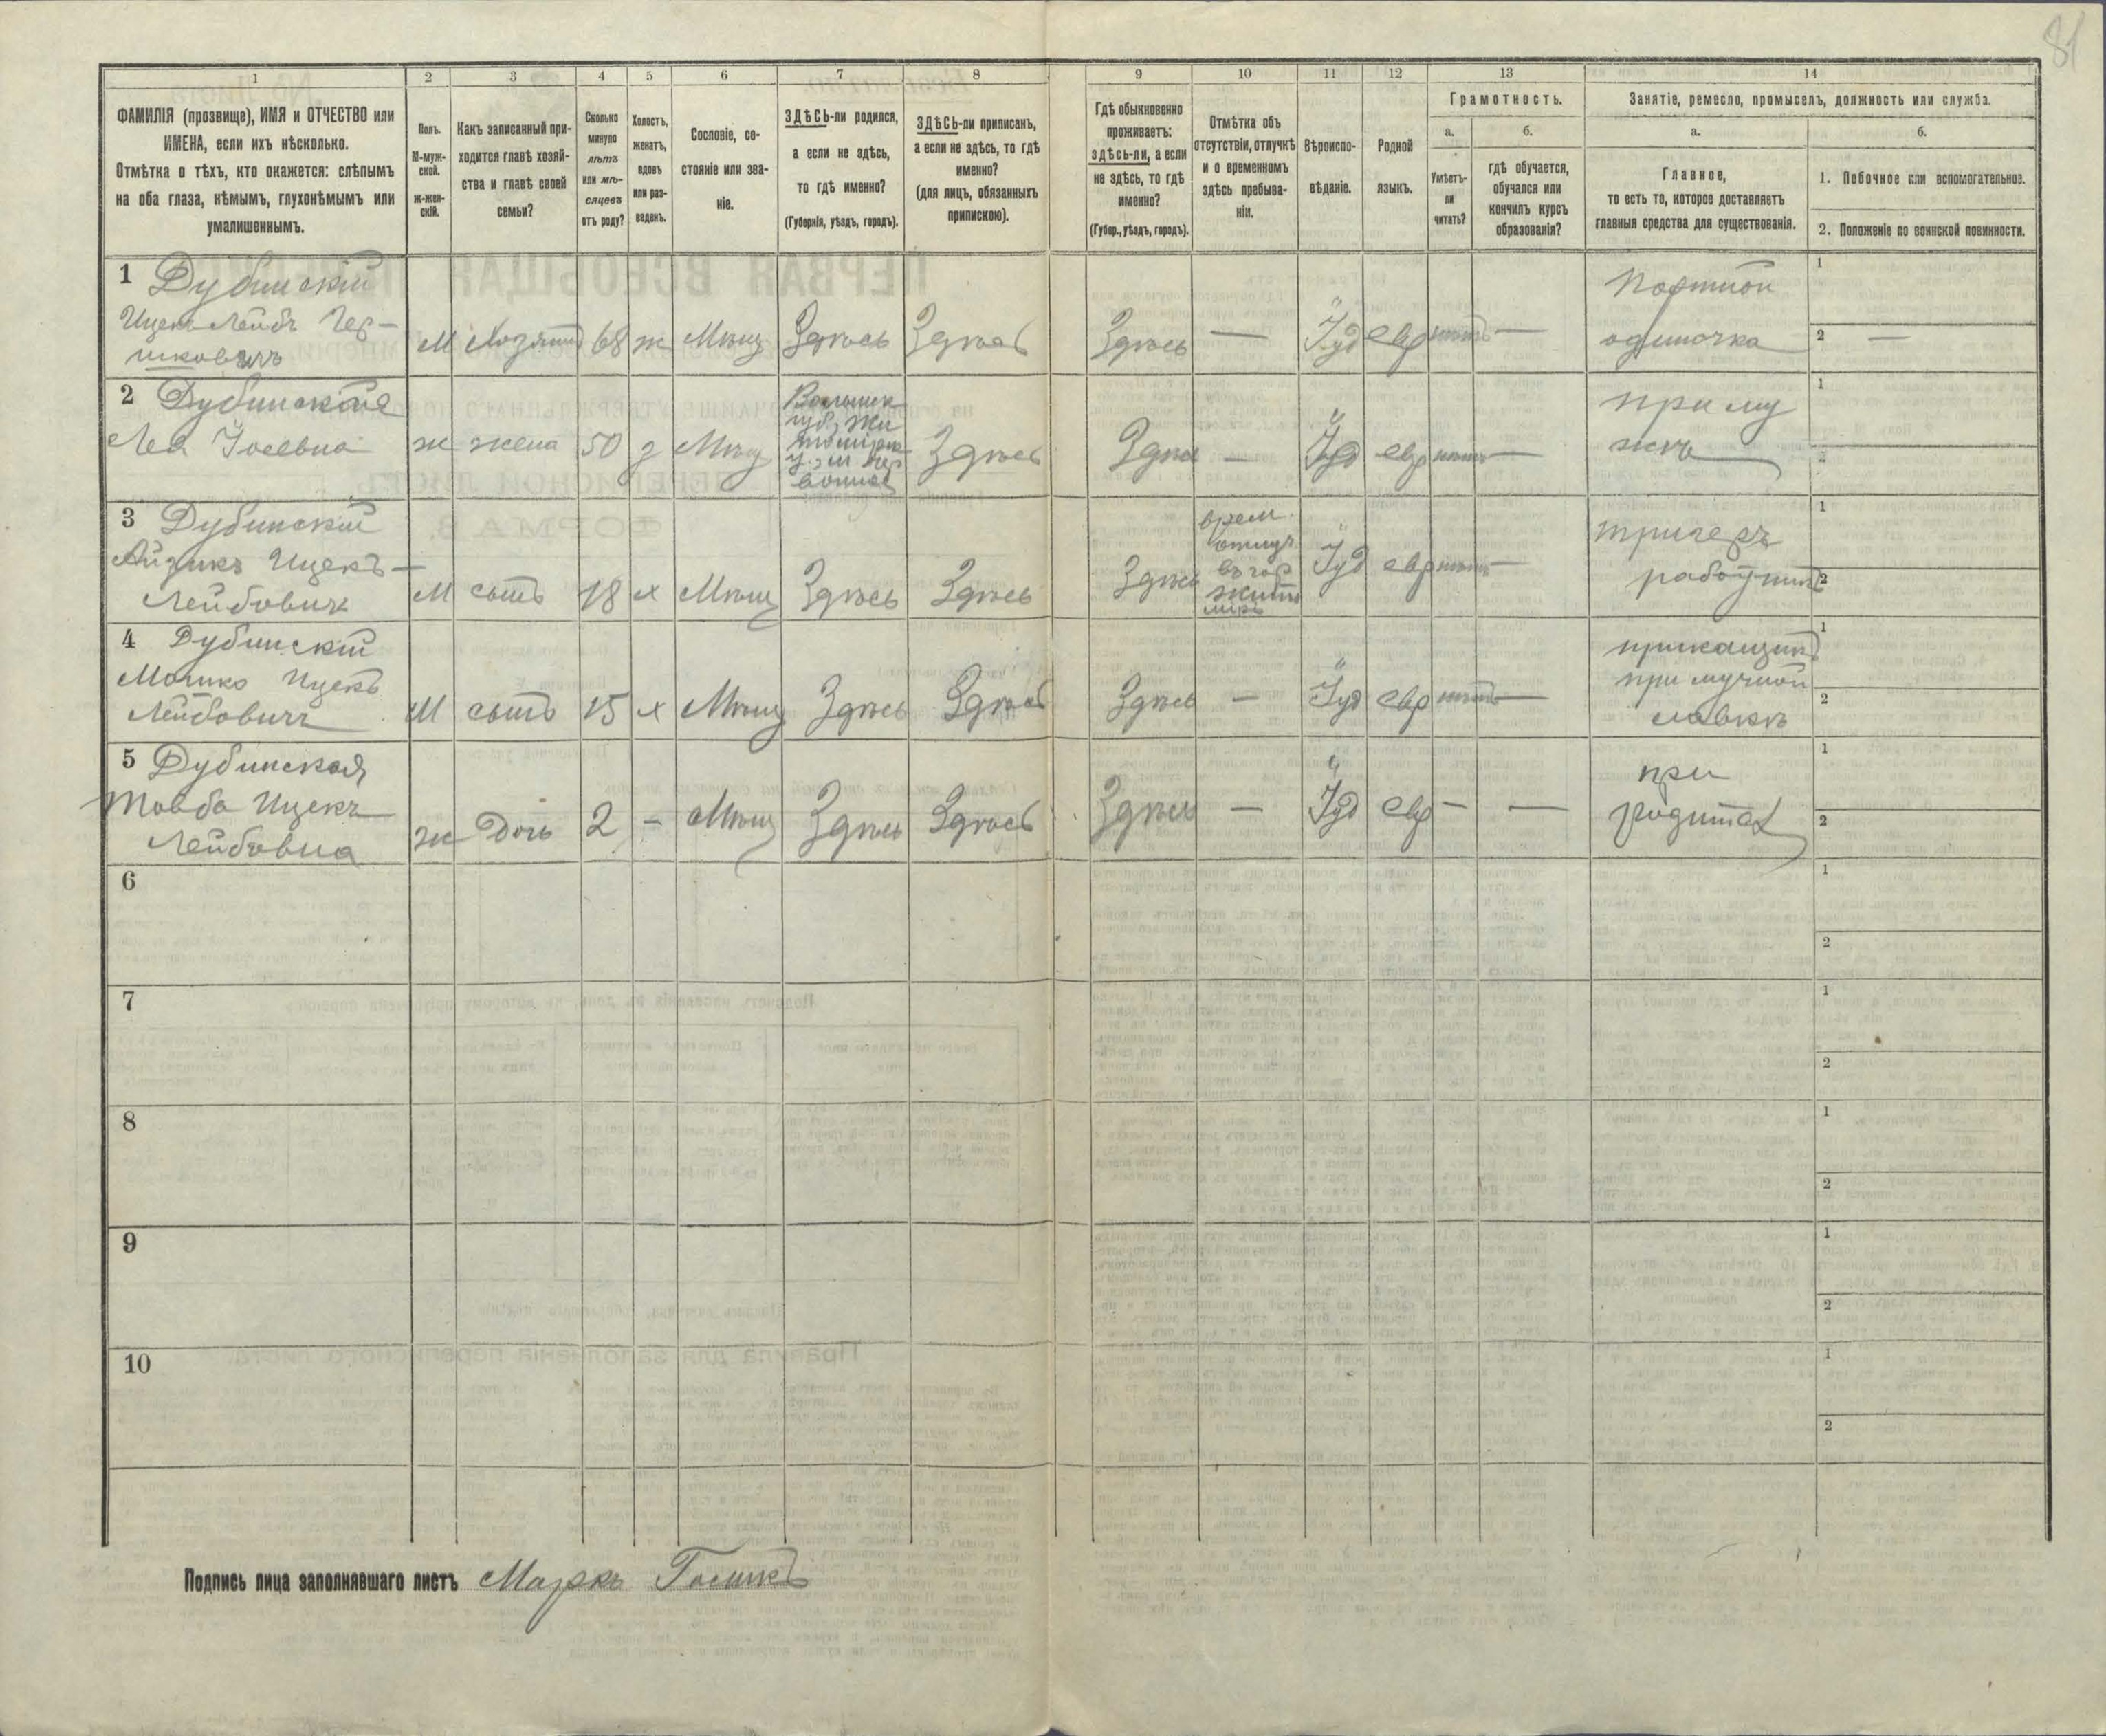 81
1 2 3 4 5 6 7 8 9 10 11 12 13 14
ФАМИЛІЯ (прозвище), ИМЯ и ОТЧЕСТВО или
ИМЕНА, если ихъ нѣсколько.
Отмѣтка о тѣхъ, кто окажется: слѣпымъ
на оба глаза, нѣмымъ, глухонѣмымъ или
умалишеннымъ.
Полъ.
М-муж-
ской.
ж-жен-
скій.
Какъ записанный при-
ходится главѣ хозяй-
ства и главѣ своей
семьи?
Сколько
минуло
лѣтъ
или мѣ-
сяцевъ
отъ роду?
Холостъ,
женатъ,
вдовъ
или раз-
веденъ.
Сословіе, со-
стояніе или зва-
ніе.
ЗДѢСЬ-ли родился,
а если не здѣсь,
то гдѣ именно?
(Губернія, уѣздъ, городъ).
ЗДѢСЬ-ли приписанъ,
а если не здѣсь, то гдѣ
именно?
(для лицъ, обязанныхъ
припискою).
Гдѣ обыкновенно
проживаетъ:
здѣсь-ли, а если
не здѣсь, то гдѣ
именно?
(Губер., уѣздъ, городъ).
Отмѣтка объ
отсутствіи, отлучкѣ
и о временномъ
здѣсь пребыва-
ніи.
Вѣроиспо-
вѣданіе.
Родной
языкъ.
Грамотность.
а.
Умѣетъ-
ли
читать?
б.
гдѣ обучается,
обучался или
кончилъ курсъ
образованія?
Занятіе, ремесло, промыселъ, должность или служба.
а.
Главное,
то есть то, которое доставляетъ
главныя средства для существованія.
б.
1. Побочное или вспомогательное.
2. Положеніе по воинской повинности.
1 Дубинскій
Ицекъ-Лейбъ Гер-
шковичъ
М Хозяинъ 68 ж Мѣщ Здѣсь Здѣсь Здѣсь — Іуд евр нѣтъ —
Портной
одиночка
1
2 —
2 Дубинская
Леа Іосевна
ж жена 50 з Мѣщ
Волынск
губ, Жи
томірск
Здѣсь Здѣсь — Іуд евр нѣтъ —
при му
жѣ
1
2
3 Дубинскій
Айзикъ Ицекъ-
Лейбовичъ
М сынъ 18 х Мѣщ Здѣсь Здѣсь Здѣсь
врем.
отлуч.
въ гор
Жито
мірѣ
Іуд евр нѣтъ —
работникъ
1
2
4 Дубинскій
Мошко Ицекъ
Лейбовичъ
М сынъ 15 х Мѣщ Здѣсь Здѣсь Здѣсь — Іуд евр нѣтъ —
прикащикъ
при мучной
лавкѣ
1
2
5 Дубинская
Товба Ицекъ
Лейбовна
ж Дочь 2 - Мѣщ Здѣсь Здѣсь Здѣсь — Іуд евр — —
при
родител
1
2
6
1
2
7
1
2
8
1
2
9
1
2
10
1
2
Подпись лица заполнявшаго листъ Маркъ Голикъ